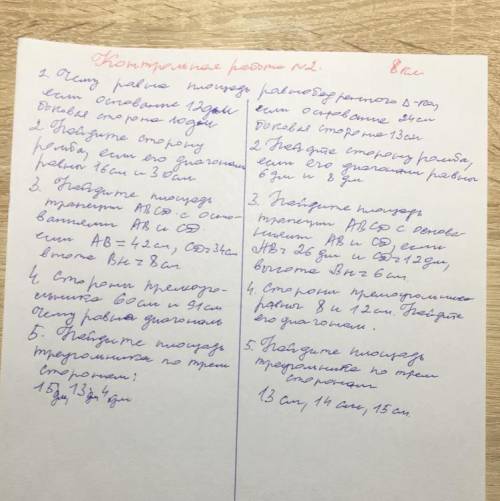 Контрольная работа №2. 8 кл
1. Чему равна площадь равнобедренного Δ-ка,
если основание 12 дм
боковая сторона 10 дм
2 Найдите сторону
ромба, если его диагонали
равны 16 см и 30 см
3. Найдите площадь
трапеции ABCD с осно-
ваниями AB и CD
если AB = 42 см, CD = 34 см
высота BH = 8 см
4. Стороны прямоуго-
льника 60 см и 91 см
Чему равна диагональ
5. Найдите площадь
треугольника по трем
сторонам:
15 дм, 13 дм, 4 дм
если основание 24 см
боковая сторона 13 см
2. Найдите сторону ромба,
если его диагонали равны
6 дм и 8 дм
3. Найдите площадь
трапеции ABCD с основа-
ниями AB и CD, если
AB = 26 дм и CD = 12 дм,
высота BH = 6 см.
4. Стороны прямоугольника
равны 8 и 12 см. Найдите
его диагонали.
5. Найдите площадь
треугольника по трем
сторонам
13 см, 14 см, 15 см